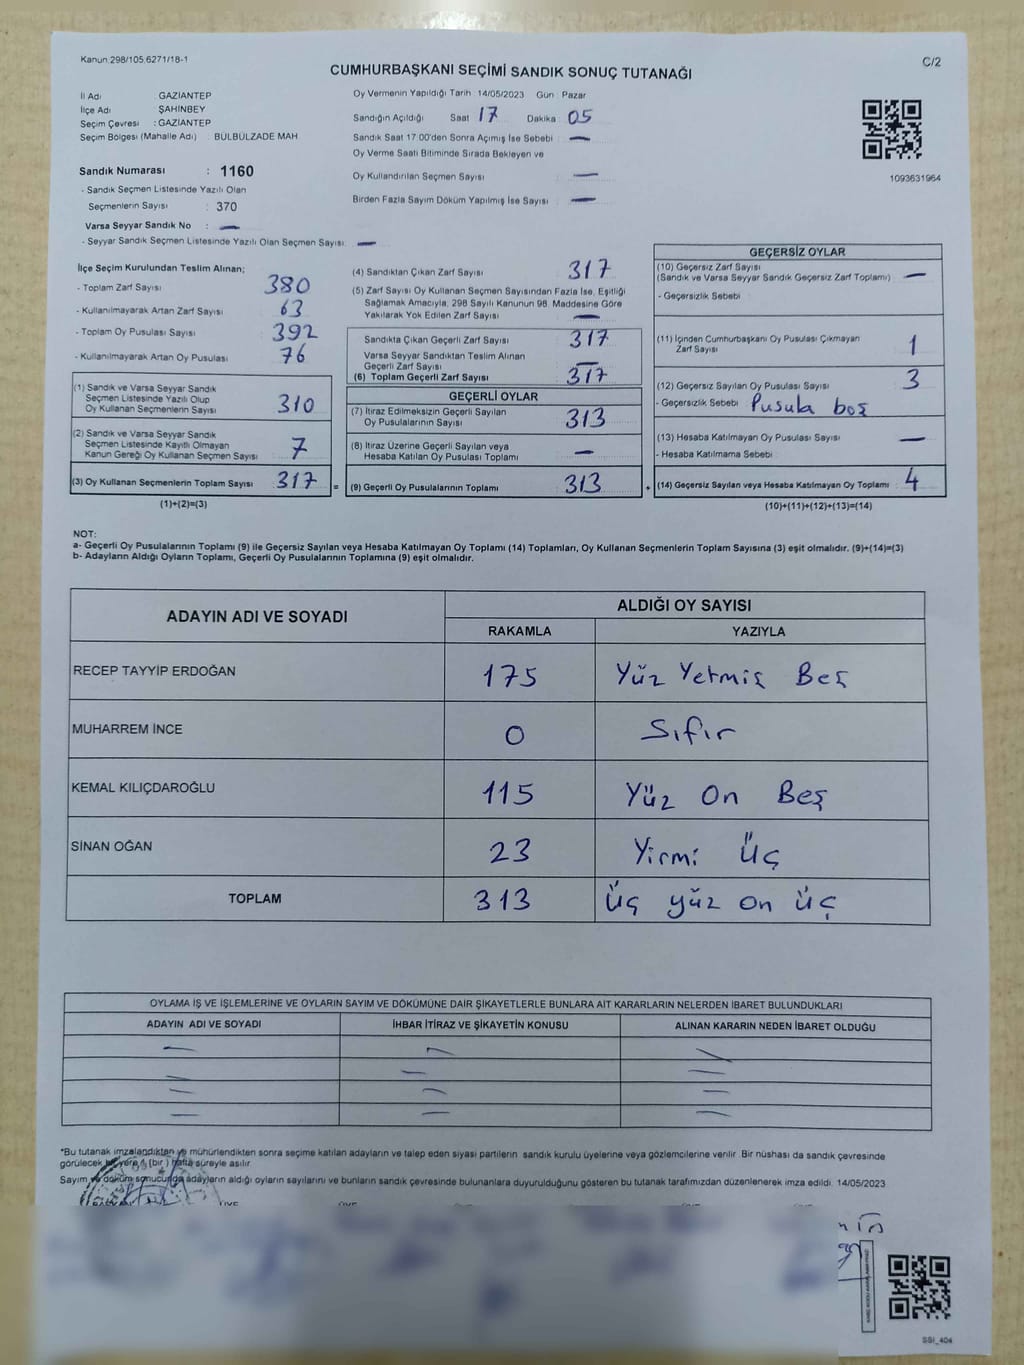 Kanun:298/105,6271/18-1
C/2
CUMHURBAŞKANI SEÇİMİ SANDIK SONUÇ TUTANAĞI
İl Adı GAZİANTEP
İlçe Adı ŞAHİNBEY
Seçim Çevresi : GAZİANTEP
Seçim Bölgesi (Mahalle Adı) : BÜLBÜLZADE MAH.
Sandık Numarası : 1160
- Sandık Seçmen Listesinde Yazılı Olan
Seçmenlerin Sayısı : 370
Varsa Seyyar Sandık No : —
- Seyyar Sandık Seçmen Listesinde Yazılı Olan Seçmen Sayısı: —
Oy Vermenin Yapıldığı Tarih : 14/05/2023 Gün : Pazar
Sandığın Açıldığı Saat 17 Dakika 05
Sandık Saat 17:00'den Sonra Açımış İse Sebebi —
Oy Verme Saati Bitiminde Sırada Bekleyen ve
Oy Kullandırılan Seçmen Sayısı —
Birden Fazla Sayım Döküm Yapılmış İse Sayısı —
1093631964
İlçe Seçim Kurulundan Teslim Alınan;
- Toplam Zarf Sayısı 380
- Kullanılmayarak Artan Zarf Sayısı 63
- Toplam Oy Pusulası Sayısı 392
- Kullanılmayarak Artan Oy Pusulası 76
(1) Sandık ve Varsa Seyyar Sandık
Seçmen Listesinde Yazılı Olup
Oy Kullanan Seçmenlerin Sayısı 310
(2) Sandık ve Varsa Seyyar Sandık
Seçmen Listesinde Kayıtlı Olmayan
Kanun Gereği Oy Kullanan Seçmen Sayısı 7
(3) Oy Kullanan Seçmenlerin Toplam Sayısı 317
(1)+(2)=(3)
=
(4) Sandıktan Çıkan Zarf Sayısı 317
(5) Zarf Sayısı Oy Kullanan Seçmen Sayısından Fazla İse, Eşitliği
Sağlamak Amacıyla, 298 Sayılı Kanunun 98. Maddesine Göre
Yakılarak Yok Edilen Zarf Sayısı —
Sandıkta Çıkan Geçerli Zarf Sayısı 317
Varsa Seyyar Sandıktan Teslim Alınan
Geçerli Zarf Sayısı —
(6) Toplam Geçerli Zarf Sayısı 317
GEÇERLİ OYLAR
(7) İtiraz Edilmeksizin Geçerli Sayılan
Oy Pusulalarının Sayısı 313
(8) İtiraz Üzerine Geçerli Sayılan veya
Hesaba Katılan Oy Pusulası Toplamı —
(9) Geçerli Oy Pusulalarının Toplamı 313
+
GEÇERSİZ OYLAR
(10) Geçersiz Zarf Sayısı
(Sandık ve Varsa Seyyar Sandık Geçersiz Zarf Toplamı) —
- Geçersizlik Sebebi
(11) İçinden Cumhurbaşkanı Oy Pusulası Çıkmayan
Zarf Sayısı 1
(12) Geçersiz Sayılan Oy Pusulası Sayısı 3
- Geçersizlik Sebebi Pusula boş
(13) Hesaba Katılmayan Oy Pusulası Sayısı —
- Hesaba Katılmama Sebebi
(14) Geçersiz Sayılan veya Hesaba Katılmayan Oy Toplamı 4
(10)+(11)+(12)+(13)=(14)
NOT:
a- Geçerli Oy Pusulalarının Toplamı (9) ile Geçersiz Sayılan veya Hesaba Katılmayan Oy Toplamı (14) Toplamları, Oy Kullanan Seçmenlerin Toplam Sayısına (3) eşit olmalıdır. (9)+(14)=(3)
b- Adayların Aldığı Oyların Toplamı, Geçerli Oy Pusulalarının Toplamına (9) eşit olmalıdır.
ADAYIN ADI VE SOYADI
ALDIĞI OY SAYISI
RAKAMLA YAZIYLA
RECEP TAYYİP ERDOĞAN 175 Yüz Yetmiş Beş
MUHARREM İNCE 0 Sıfır
KEMAL KILIÇDAROĞLU 115 Yüz On Beş
SİNAN OĞAN 23 Yirmi Üç
TOPLAM 313 Üç yüz on üç
OYLAMA İŞ VE İŞLEMLERİNE VE OYLARIN SAYIM VE DÖKÜMÜNE DAİR ŞİKAYETLERLE BUNLARA AİT KARARLARIN NELERDEN İBARET BULUNDUKLARI
ADAYIN ADI VE SOYADI İHBAR İTİRAZ VE ŞİKAYETİN KONUSU ALINAN KARARIN NEDEN İBARET OLDUĞU
— — —
— — —
— — —
— — —
*Bu tutanak imzalandıktan ve mühürlendikten sonra seçime katılan adayların ve talep eden siyasi partilerin sandık kurulu üyelerine veya gözlemcilerine verilir. Bir nüshası da sandık çevresinde
görülecek bir yere 1 (bir) hafta süreyle asılır.
Sayım ve döküm sonucunda adayların aldığı oyların sayılarını ve bunların sandık çevresinde bulunanlara duyurulduğunu gösteren bu tutanak tarafımızdan düzenlenerek imza edildi. 14/05/2023
SSI_404